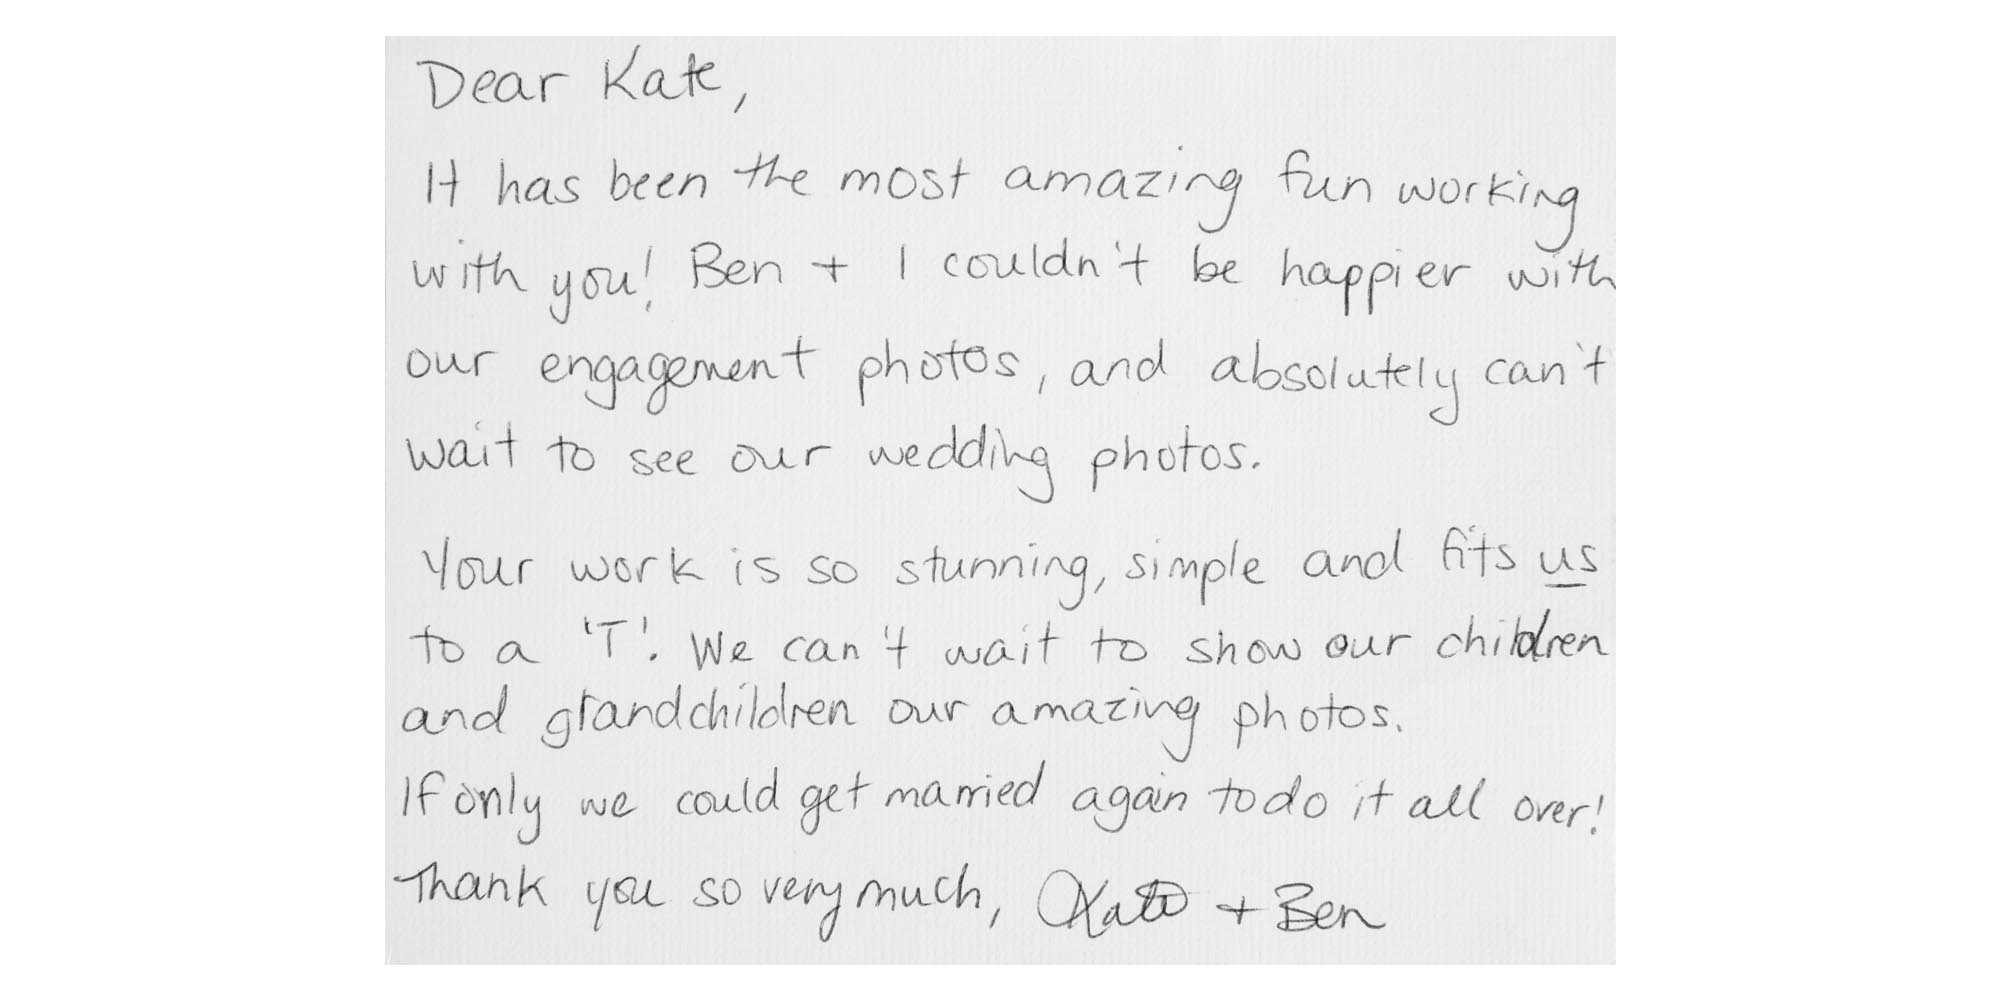 Dear Kate,
It has been the most amazing fun working
with you! Ben + I couldn't be happier with
our engagement photos, and absolutely can't
wait to see our wedding photos.
Your work is so stunning, simple and fits us
to a 'T'. We can't wait to show our children
and grandchildren our amazing photos.
If only we could get married again to do it all over!
Thank you so very much, Kate + Ben